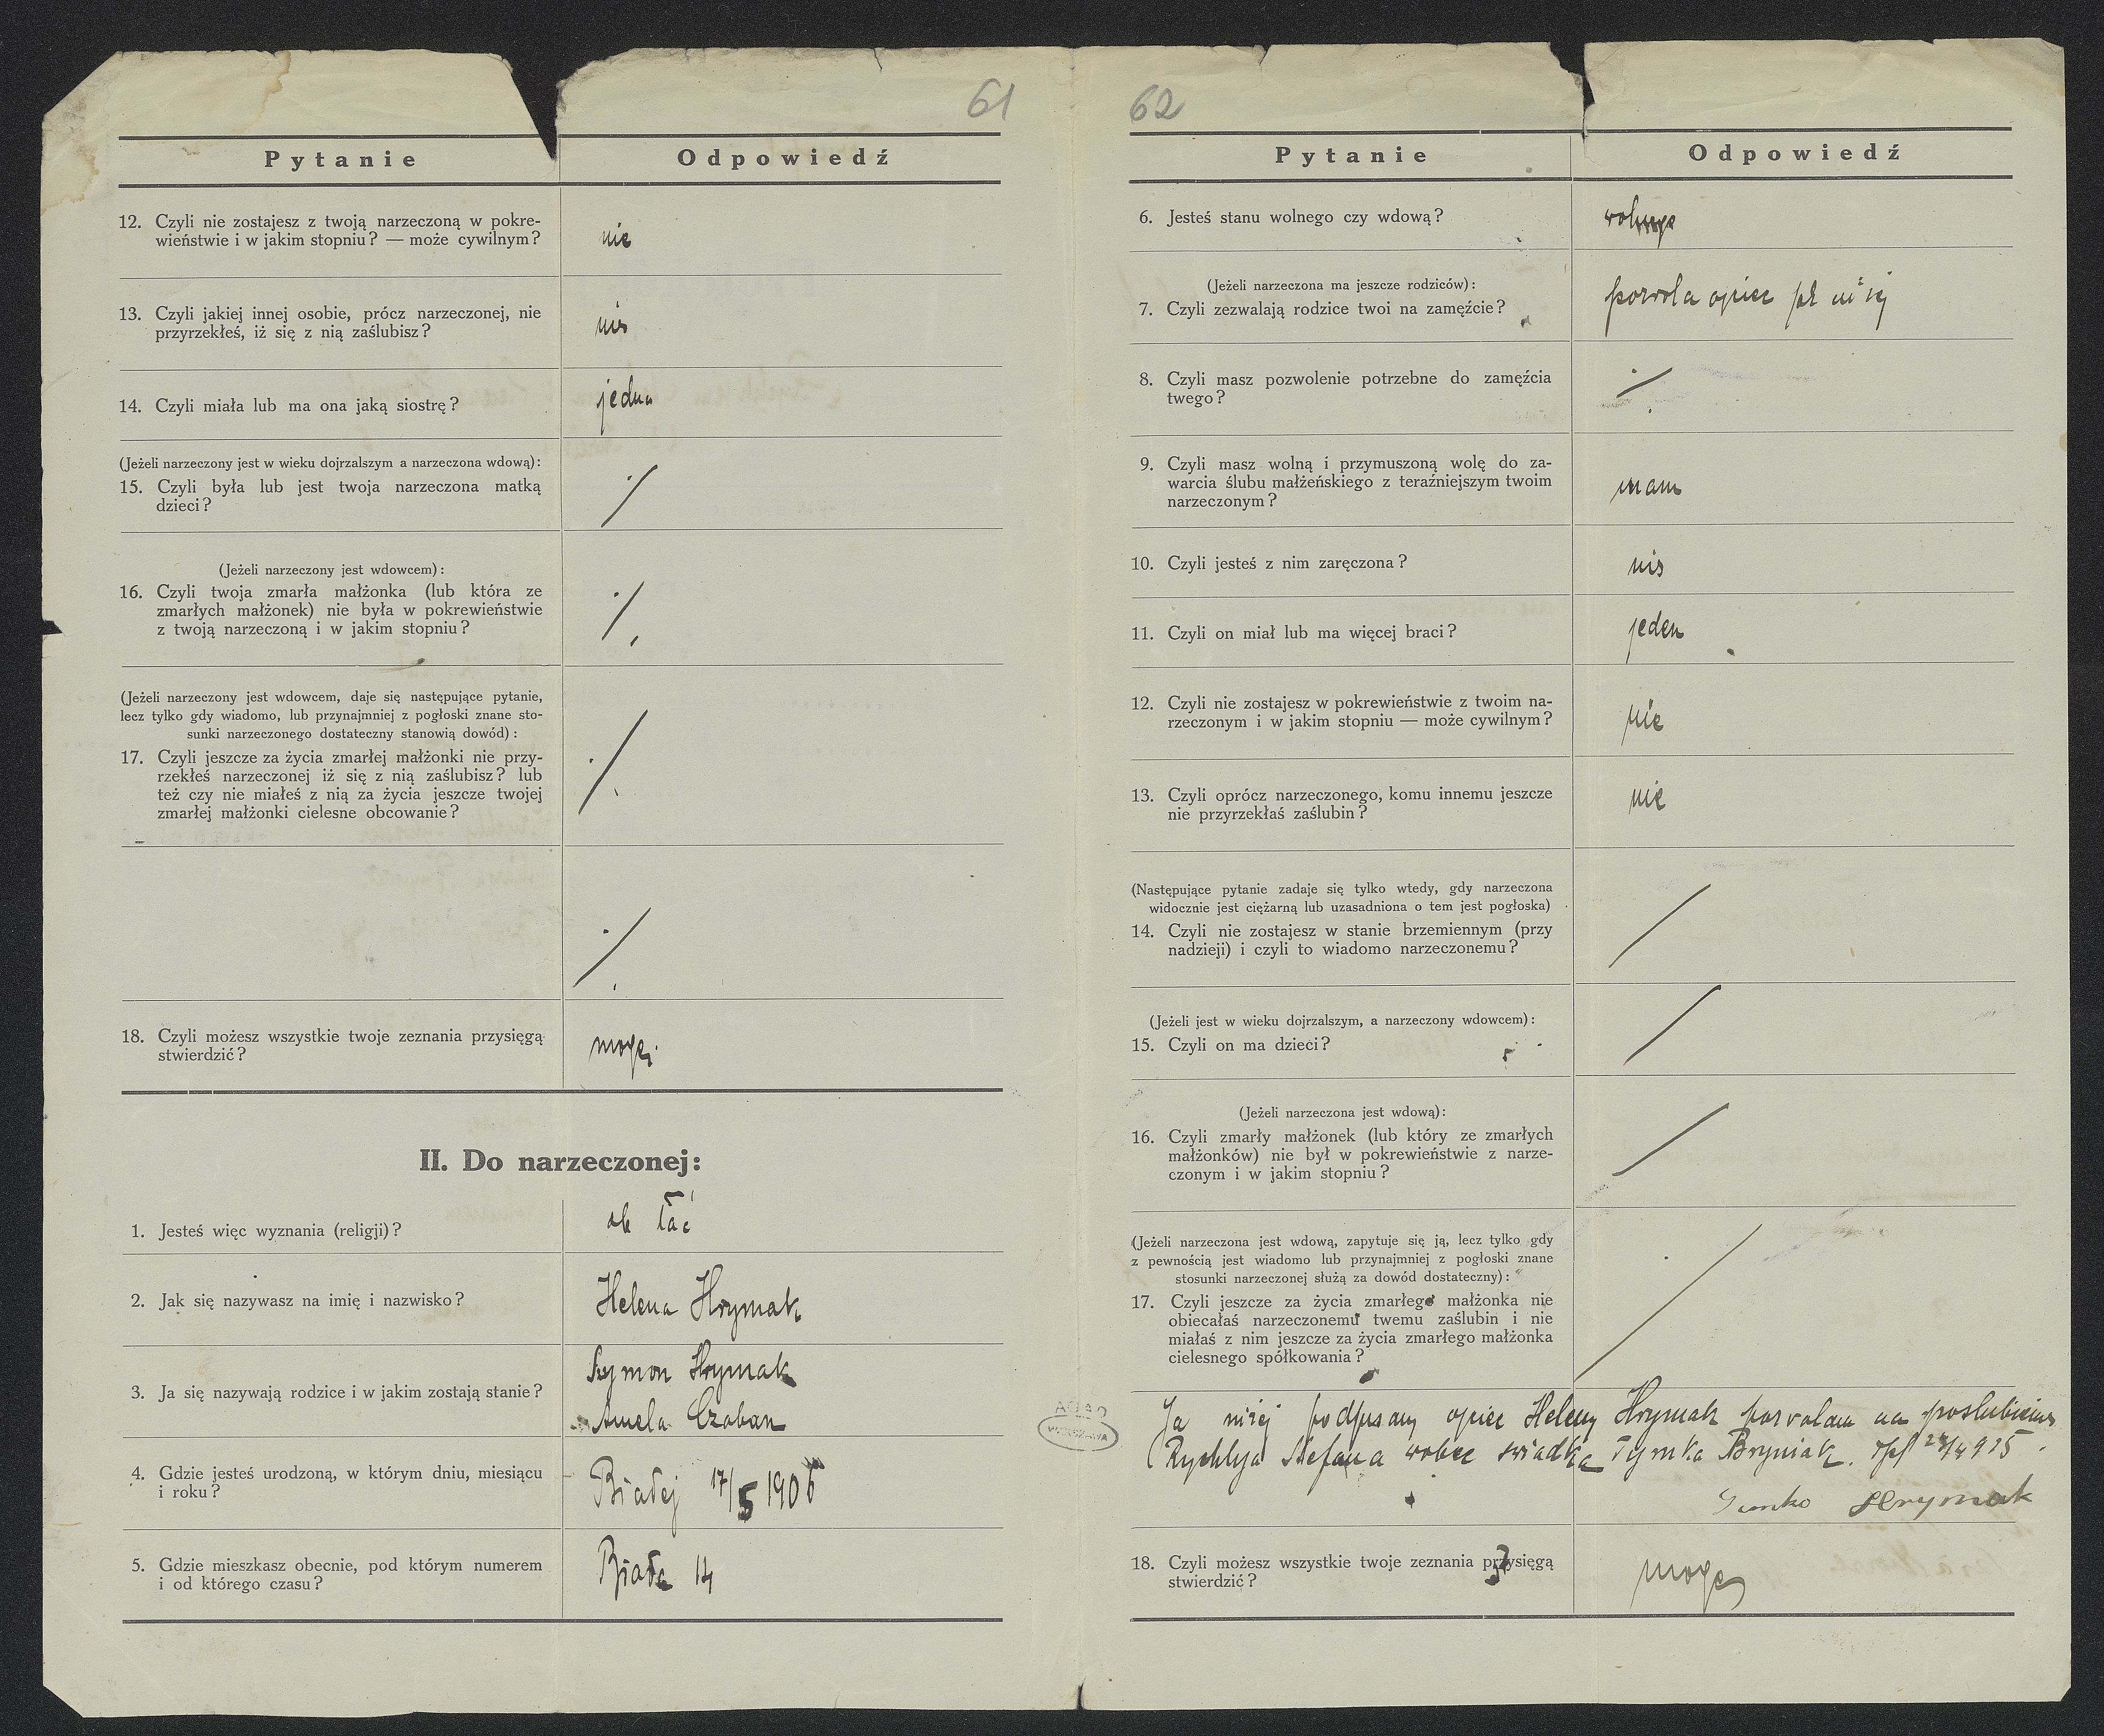 61
Pytanie Odpowiedź
12. Czyli nie zostajesz z twoją narzeczoną w pokre-
wieństwie i w jakim stopniu? — może cywilnym?
nie
13. Czyli jakiej innej osobie, prócz narzeczonej, nie
przyrzekłeś, iż się z nią zaślubisz?
nie
14. Czyli miała lub ma ona jaką siostrę?
jedna
(Jeżeli narzeczony jest w wieku dojrzalszym a narzeczona wdową):
15. Czyli była lub jest twoja narzeczona matką
dzieci?
(Jeżeli narzeczony jest wdowcem):
16. Czyli twoja zmarła małżonka (lub która ze
zmarłych małżonek) nie była w pokrewieństwie
z twoją narzeczoną i w jakim stopniu?
(Jeżeli narzeczony jest wdowcem, daje się następujące pytanie,
lecz tylko gdy wiadomo, lub przynajmniej z pogłoski znane sto-
sunki narzeczonego dostateczny stanowią dowód):
17. Czyli jeszcze za życia zmarłej małżonki nie przy-
rzekłeś narzeczonej iż się z nią zaślubisz? lub
też czy nie miałeś z nią za życia jeszcze twojej
zmarłej małżonki cielesne obcowanie?
18. Czyli możesz wszystkie twoje zeznania przysięgą
stwierdzić?
mogę
II. Do narzeczonej:
1. Jesteś więc wyznania (religji)?
2. Jak się nazywasz na imię i nazwisko?
Helena Hrymak
3. Ja się nazywają rodzice i w jakim zostają stanie?
Szymon Hrymak
Czaban
4. Gdzie jesteś urodzoną, w którym dniu, miesiącu
i roku?
Białej 17/5 1906
5. Gdzie mieszkasz obecnie, pod którym numerem
i od którego czasu?
Biała 14
62
Pytanie Odpowiedź
6. Jesteś stanu wolnego czy wdową?
wolnego
(Jeżeli narzeczona ma jeszcze rodziców):
7. Czyli zezwalają rodzice twoi na zamęźcie?
pozwala opiec niżej
8. Czyli masz pozwolenie potrzebne do zamęźcia
twego?
9. Czyli masz wolną i przymuszoną wolę do za-
warcia ślubu małżeńskiego z teraźniejszym twoim
narzeczonym?
mam
10. Czyli jesteś z nim zaręczona?
nie
11. Czyli on miał lub ma więcej braci?
jeden
12. Czyli nie zostajesz w pokrewieństwie z twoim na-
rzeczonym i w jakim stopniu — może cywilnym?
nie
13. Czyli oprócz narzeczonego, komu innemu jeszcze
nie przyrzekłaś zaślubin?
nie
(Następujące pytanie zadaje się tylko wtedy, gdy narzeczona
widocznie jest ciężarną lub uzasadniona o tem jest pogłoska)
14. Czyli nie zostajesz w stanie brzemiennym (przy
nadzieji) i czyli to wiadomo narzeczonemu?
(Jeżeli jest w wieku dojrzalszym, a narzeczony wdowcem):
15. Czyli on ma dzieci?
(Jeżeli narzeczona jest wdową):
16. Czyli zmarły małżonek (lub który ze zmarłych
małżonków) nie był w pokrewieństwie z narze-
czonym i w jakim stopniu?
(Jeżeli narzeczona jest wdową, zapytuje się ją, lecz tylko gdy
z pewnością jest wiadomo lub przynajmniej z pogłoski znane
stosunki narzeczonej służą za dowód dostateczny):
17. Czyli jeszcze za życia zmarłego małżonka nie
obiecałaś narzeczonemu twemu zaślubin i nie
miałaś z nim jeszcze za życia zmarłego małżonka
cielesnego spółkowania?
Ja niżej podpisany opiec Heleny Hrymak pozwalam na poslubienie
Rychlyja Stefana wobec swiadka Tymka Bryniak.
Hrymak
18. Czyli możesz wszystkie twoje zeznania przysięgą
stwierdzić?
mogę